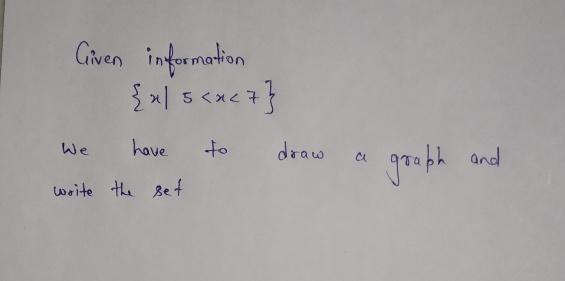 Given information
{x| 5 <x< 7}
We have to draw a graph and
write the set